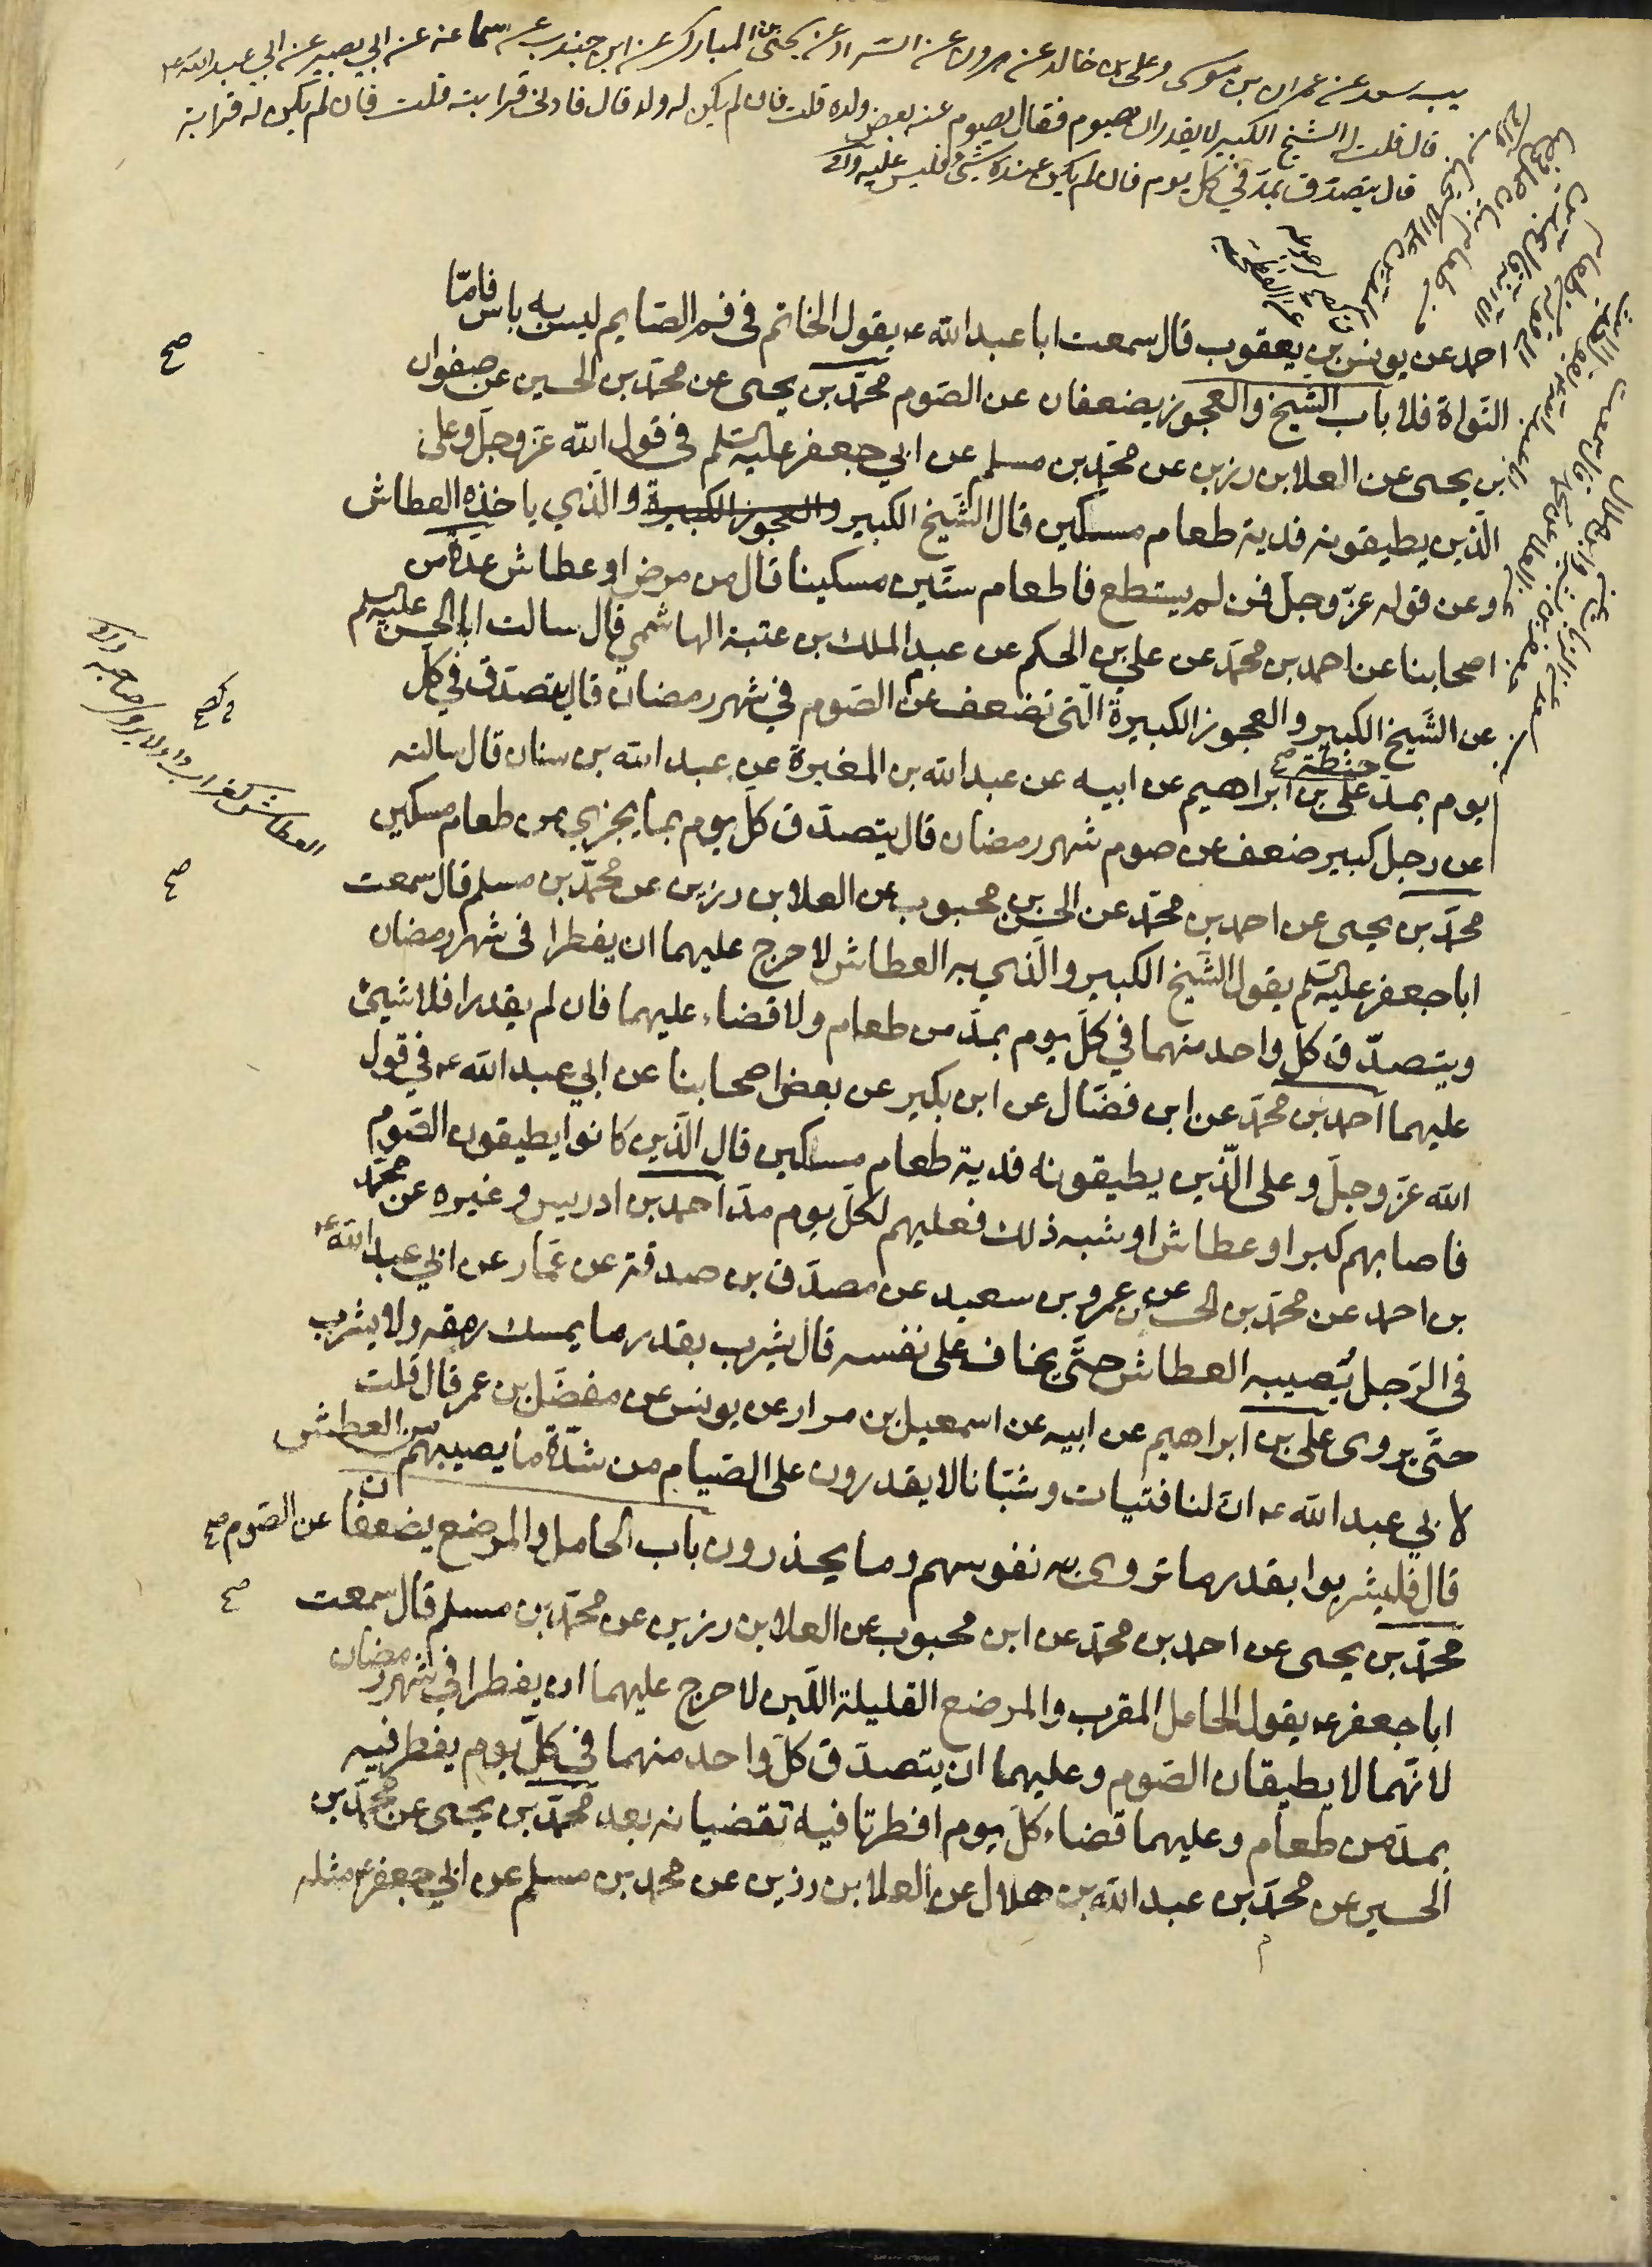 يب سعد عن عمران بن موسى وعلى بن خالد عن هرون عن السراد عن يحيى بن المبارك عن ابن جندب عن سماعة عن ابي بصير عن ابي عبد الله ع
قال قلت له الشيخ الكبير لا يقدر ان يصوم فقال يصوم عنه بعض ولده قلت فان لم يكن له ولد قال فادنى قرابته قلت فان لم يكن له قرابة
قال يتصدق بمد في كل يوم فان لم يكن عنده شئ فليس عليه
احمد عن يونس بن يعقوب قال سمعت ابا عبد الله ع يقول الخاتم فى فم الصايم ليس به باس فامّا
النواة فلا باب الشيخ والعجوز يضعفان عن الصوم محمّد بن يحيى عن محمّد بن الحسين عن صفوان
بن يحيى عن العلا بن رزين عن محمّد بن مسلم عن ابي جعفر عليه السلم فى قول الله عزّ وجلّ وعلى
الّذين يطيقونه فدية طعام مسكين قال الشيخ الكبير والعجوز الكبيرة والّذي ياخذه العطاش
وعن قوله عزّ وجلّ فمن لم يستطع فاطعام ستّين مسكينا قال من مرض او عطاش عدة من
اصحابنا عن احمد بن محمّد عن علي بن الحكم عن عبد الملك بن عتبة الهاشمي قال سالت ابا الحسن عليه السلم
عن الشيخ الكبير والعجوز الكبيرة الّتى تضعف عن الصوم في شهر رمضان قال يتصدّق في كل
يوم بمد حنطة على بن ابراهيم عن ابيه عن عبد الله بن المغيرة عن عبد الله بن سنان قال سالته
عن رجل كبير ضعف عن صوم شهر رمضان قال يتصدّق كلّ يوم بما يجزي من طعام مسكين
محمّد بن يحيى عن احمد بن محمّد عن الحسن بن محبوب عن العلا بن رزين عن محمّد بن مسلم قال سمعت
ابا جعفر عليه السلم يقول الشّيخ الكبير والّذي به العطاش لا حرج عليهما ان يفطرا فى شهر رمضان
ويتصدّق كلّ واحد منهما في كلّ يوم بمدّ من طعام ولا قضاء عليهما فان لم يقدرا فلا شيئ
عليهما احمد بن محمّد عن ابن فضّال عن ابن بكير عن بعض اصحابنا عن ابي عبد الله ع في قول
الله عزّ وجلّ وعلى الّذين يطيقونه فدية طعام مسكين قال الّذين كانوا يطيقون الصّوم
فاصابهم كبر او عطاش او شبه ذلك فعليهم لكلّ يوم مدّ احمد بن ادريس وغيره عن محمّد
بن احمد عن محمّد بن الحسين عن عمرو بن سعيد عن مصدّق بن صدقة عن عمّار عن ابي عبد الله ع
فى الرّجل يُصيبه العطاش حتّى يخاف على نفسه قال يشرب بقدر ما يمسك رمقه ولا يشرب
حتّى يروى على بن ابراهيم عن ابيه عن اسمعيل بن مرار عن يونس عن مفضّل بن عمر قال قلت
لابي عبد الله ع انّ لنا فتيات وشبّانا لا يقدرون على الصيام من شدّة ما يصيبهم من العطش
قال فليشربوا بقدر ما تروى به نفوسهم وما يحذرون باب الحامل والمرضع يضعفان عن الصّوم
محمّد بن يحيى عن احمد بن محمّد عن ابن محبوب عن العلا بن رزين عن محمّد بن مسلم قال سمعت
ابا جعفر ع يقول الحامل المقرب والمرضع القليلة اللّبن لا حرج عليهما ان يفطرا في شهر رمضان
لانّهما لا يطيقان الصّوم وعليهما ان يتصدّق كلّ واحد منهما في كلّ يوم يفطر فيه
بمدّ من طعام وعليهما قضاء كلّ يوم افطرتا فيه تقضيانه بعد محمّد بن يحيى عن محمّد بن
الحسين عن محمّد بن عبد الله بن هلال عن العلا بن رزين عن محمد بن مسلم عن ابي جعفر ع مثله